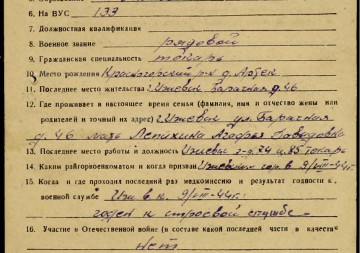 6. На ВУС 133
7. Должностная квалификация
8. Военное звание рядовой
9. Гражданская специальность токарь
10. Место рождения Красногорский р-н д. Артек
11. Последнее место жительства г. Ижевск Баратная д. 46
12. Где проживает в настоящее время семья (фамилия, имя и отчество жены или
родителей и точный их адрес) г. Ижевск ул. Баратная
д. 46 мать Летихина Агафья
13. Последнее место работы и должность Ижевск з-д 74 ц. 85 токарь
14. Каким райгорвоенкоматом и когда призван Ижевским гор. в 9/VIII-44г.
15. Когда и где проходил последний раз медкомиссию и результат годности к
военной службе Иж в к. 9/VIII-44г.
годен к строевой службе
16. Участие в Отечественной войне (в составе какой последней части в качестве
нет